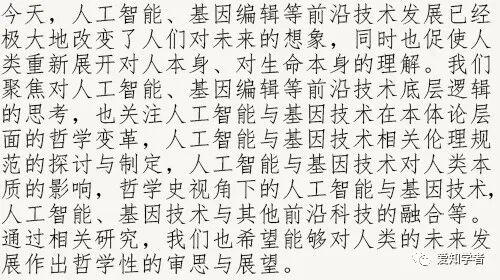 今天，人工智能、基因编辑等前沿技术发展已经
极大地改变了人们对未来的想象，同时也促使人
类重新展开对人本身、对生命本身的理解。我们
聚焦对人工智能、基因编辑等前沿技术底层逻辑
的思考，也关注人工智能与基因技术在本体论层
面的哲学变革，人工智能与基因技术相关伦理规
范的探讨与制定，人工智能与基因技术对人类本
质的影响，哲学史视角下的人工智能与基因技术，
人工智能、基因技术与其他前沿科技的融合等。
通过相关研究，我们也希望能够对人类的未来发
展作出哲学性的审思与展望。
爱知学者